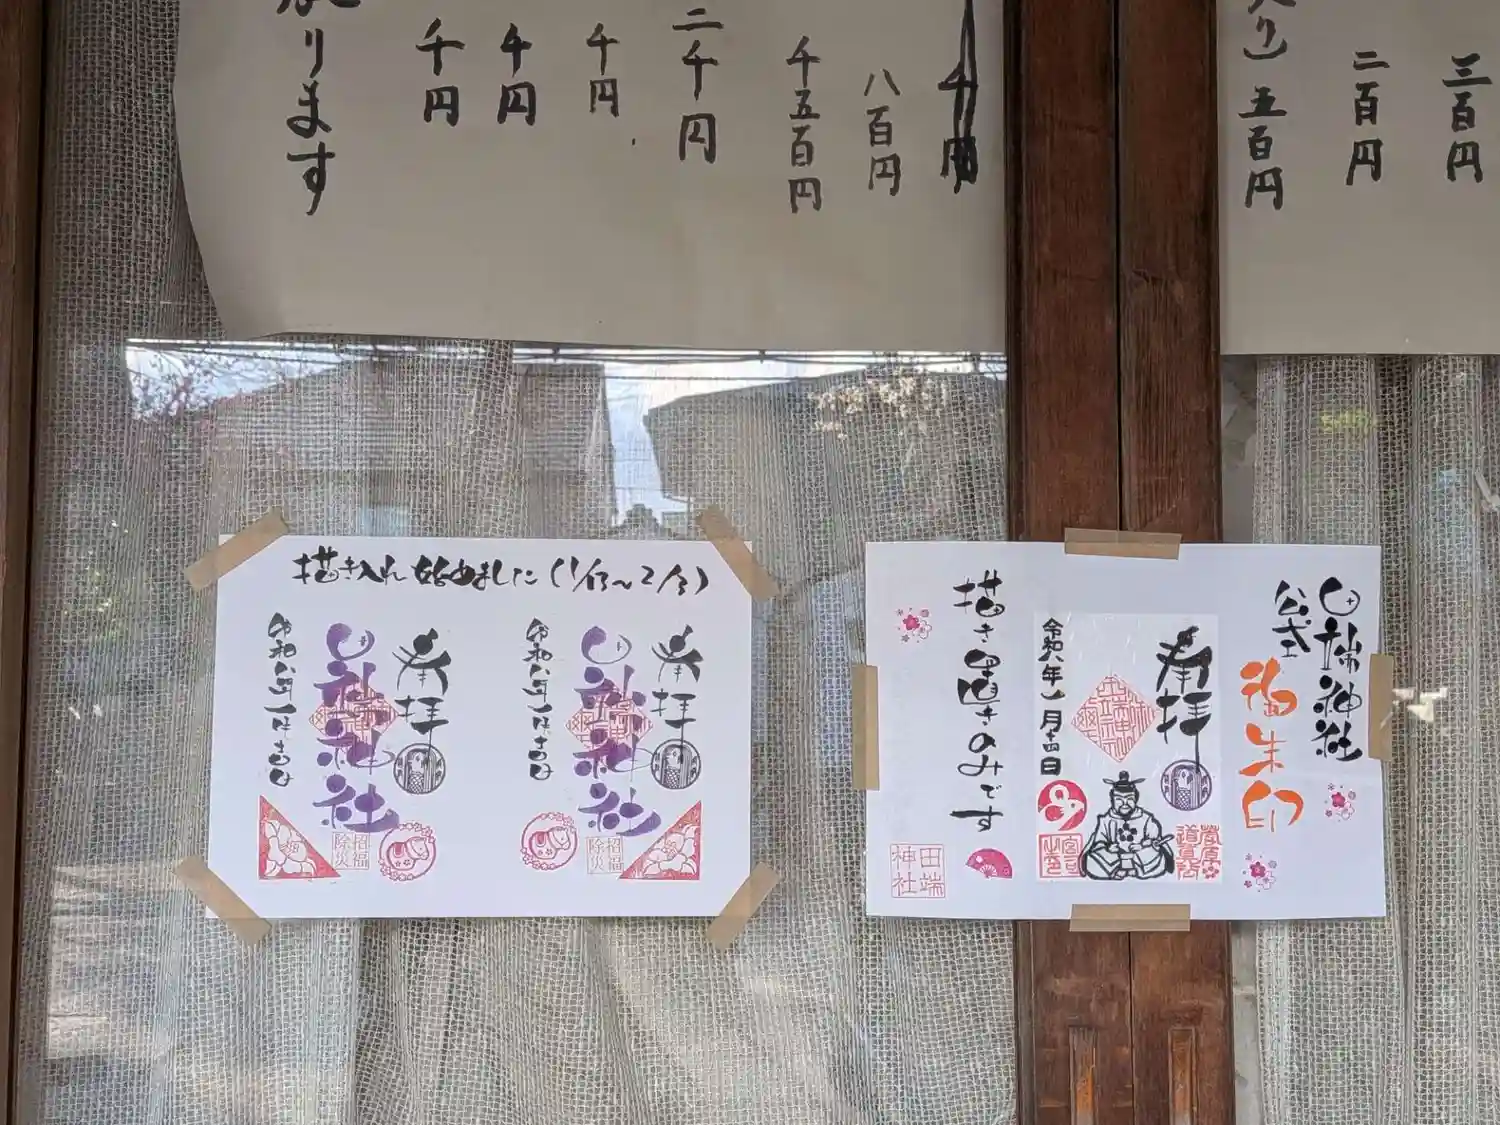 ります
千円
千円
千円
二千円
千五百円
八百円
千円
五百円
二百円
三百円
描き入れ始めました
奉拝
田端神社
令和八年一月十四日
招福
除災
奉拝
田端神社
令和八年一月十四日
招福
除災
田端神社
公式
御朱印
奉拝
令和八年一月十四日
描き置きのみです
田端
神社